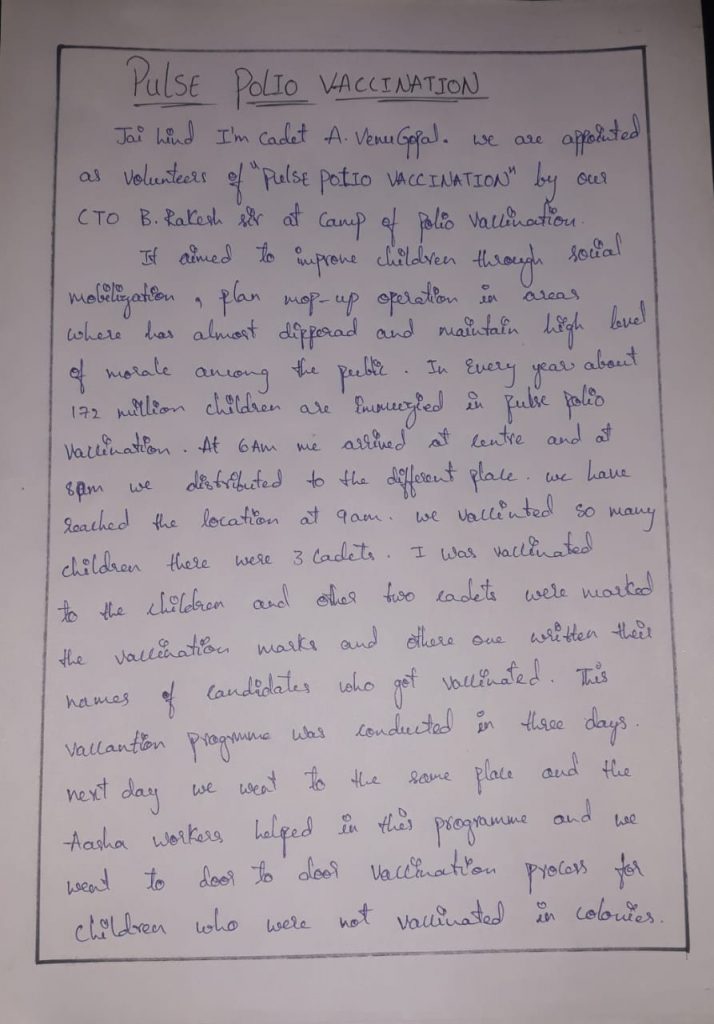 PULSE POLIO VACCINATION
Jai hind I'm cadet A. VenuGopal. we are appointed
as volunteers of "Pulse Polio VACCINATION" by our
CTO B. Rakesh sir at camp of polio vaccination.
It aimed to improve children through social
mobilization, plan mop-up operation in areas
where has almost differad and maintain high level
of morale among the public. In Every year about
172 million children are in pulse polio
vaccination. At 6Am we arrived at centre and at
8am we distributed to the different place. we have
reached the location at 9am. we vaccinted so many
children there were 3 cadets. I was vaccinated
to the children and other two cadets were marked
the vaccination marks and othere one written their
names of candidates who got vaccinated. This
vaccantion progrmme was conducted in three days.
next day we went to the same place and the
Aasha workers helped in this programme and we
went to door to door vaccination process for
children who were not vaccinated in colonies.